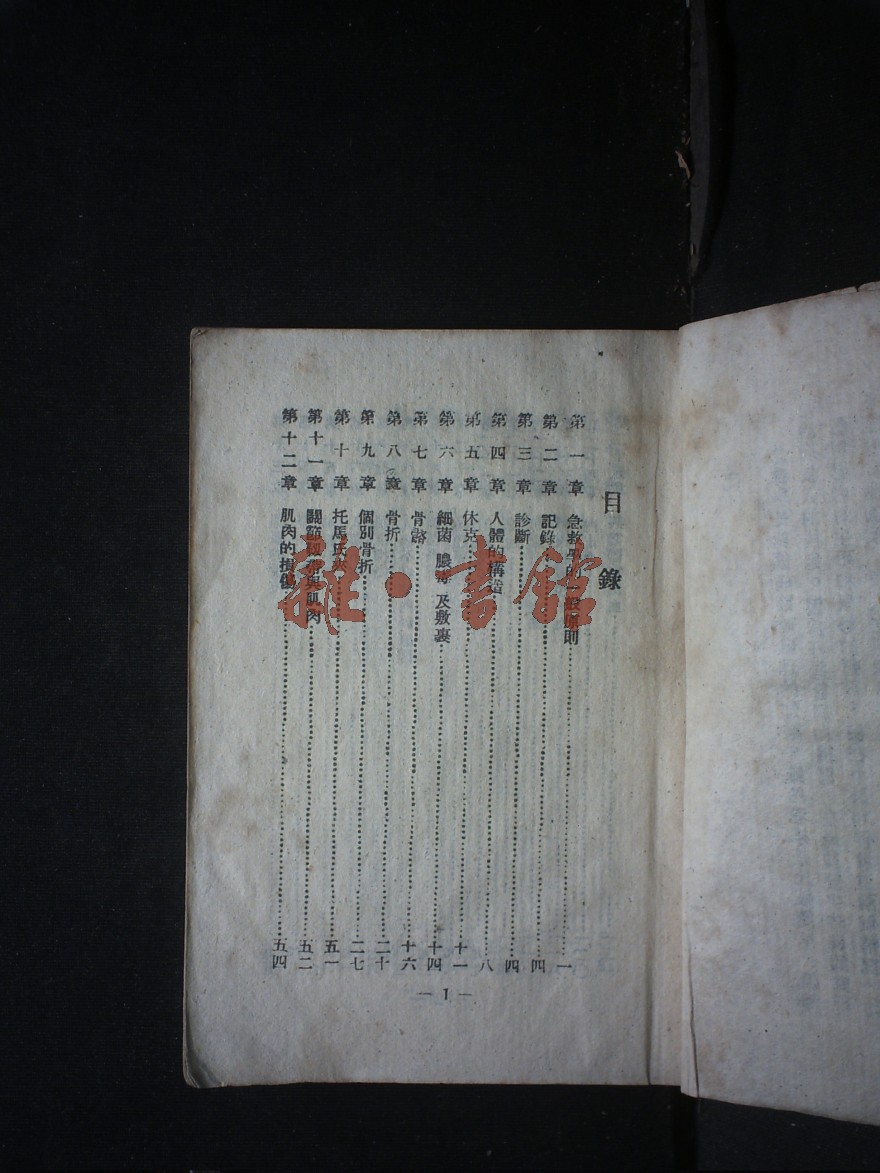 目錄
第一章 急救學的一般原則 一
第二章 記錄 四
第三章 診斷 四
第四章 人體的構造 八
第五章 休克 十一
第六章 細菌 膿毒 及敷裹 十四
第七章 骨骼 十六
第八章 骨折 二十
第九章 個別骨折 二七
第十章 托馬氏夾 五一
第十一章 關節韌帶與肌肉 五二
第十二章 肌肉的損傷 五四
— 1 —
雜·書館